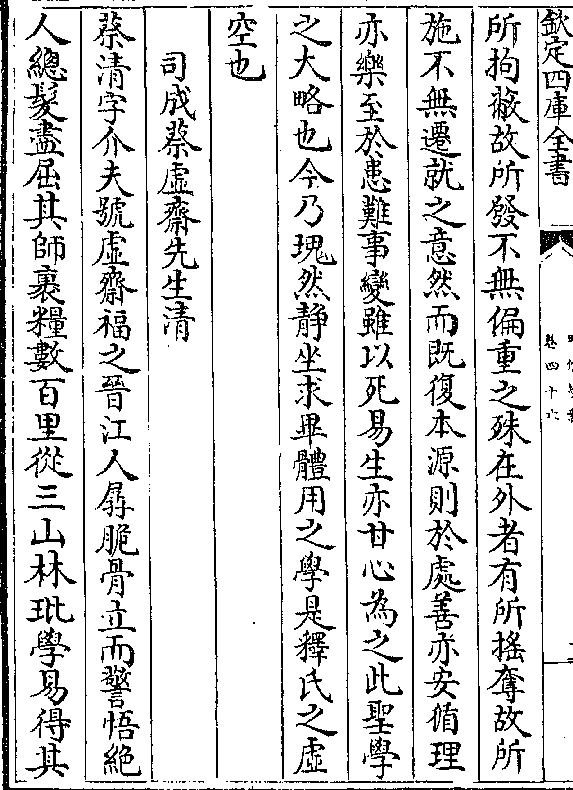 欽定四庫全書
卷四十六
所拘蔽故所發不無偏重之殊在外者有所搖奪故所
施不無遷就之意然而既復本源則於處善亦安循理
亦樂至於患難事變雖以死易生亦甘心為之此聖學
之大略也今乃塊然静坐求畢體用之學是釋氏之虛
空也
司成蔡虛齋先生清
蔡清字介夫號虛齋福之晉江人孱脆骨立而警悟絶
人總髮盡屈其師裹糧數百里從三山林玭學易得其